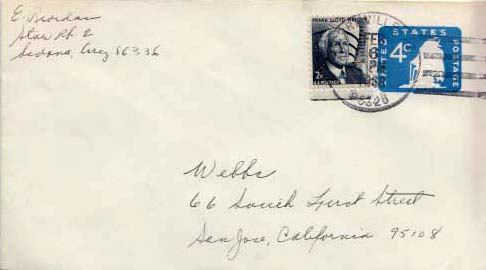 E. Riordan
Star Rt. 2
Sedona, Ariz 86336
FRANK LLOYD WRIGHT
2¢
VILLE
FEB
6
UNITED STATES POSTAGE
4¢
Webbs
66 South First Street
San Jose, California 95108